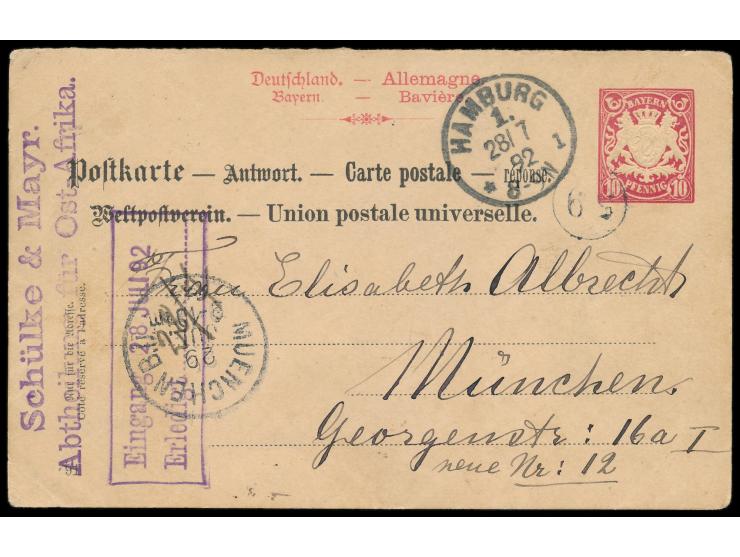 Deutschland. — Allemagne
Bayern. — Bavière
Postkarte — Antwort. — Carte postale — réponse.
Weltpostverein. — Union postale universelle.
BAYERN
10 PFENNIG 10
HAMBURG
1.
28/7
92
8-
1
Schülke & Mayr.
für Ost-Afrika.
Nur für die Adresse.
Côté réservé à l'adresse.
Eingang 28 JULI 92
Erledigt
MUENCHEN
29
Elisabeth Albrecht
München.
Georgenstr: 16a I
neue Nr: 12